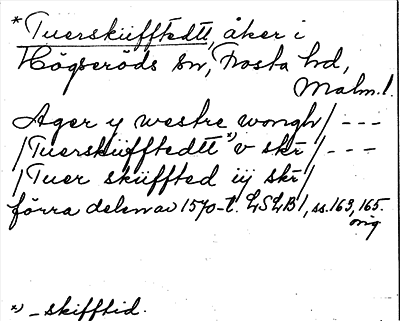 *Tuerskiifftedtt, åker i
Högseröds sn, Frosta hd,
Malm.l.
Ager y westre wongh / ---
/ Tuerskiifftedtt *) v skr / ---
/ Tuer skiiffted iij skr /
förra delen av 1570-t. LSLB 1, ss. 163, 165.
orig
*) - skifftid.